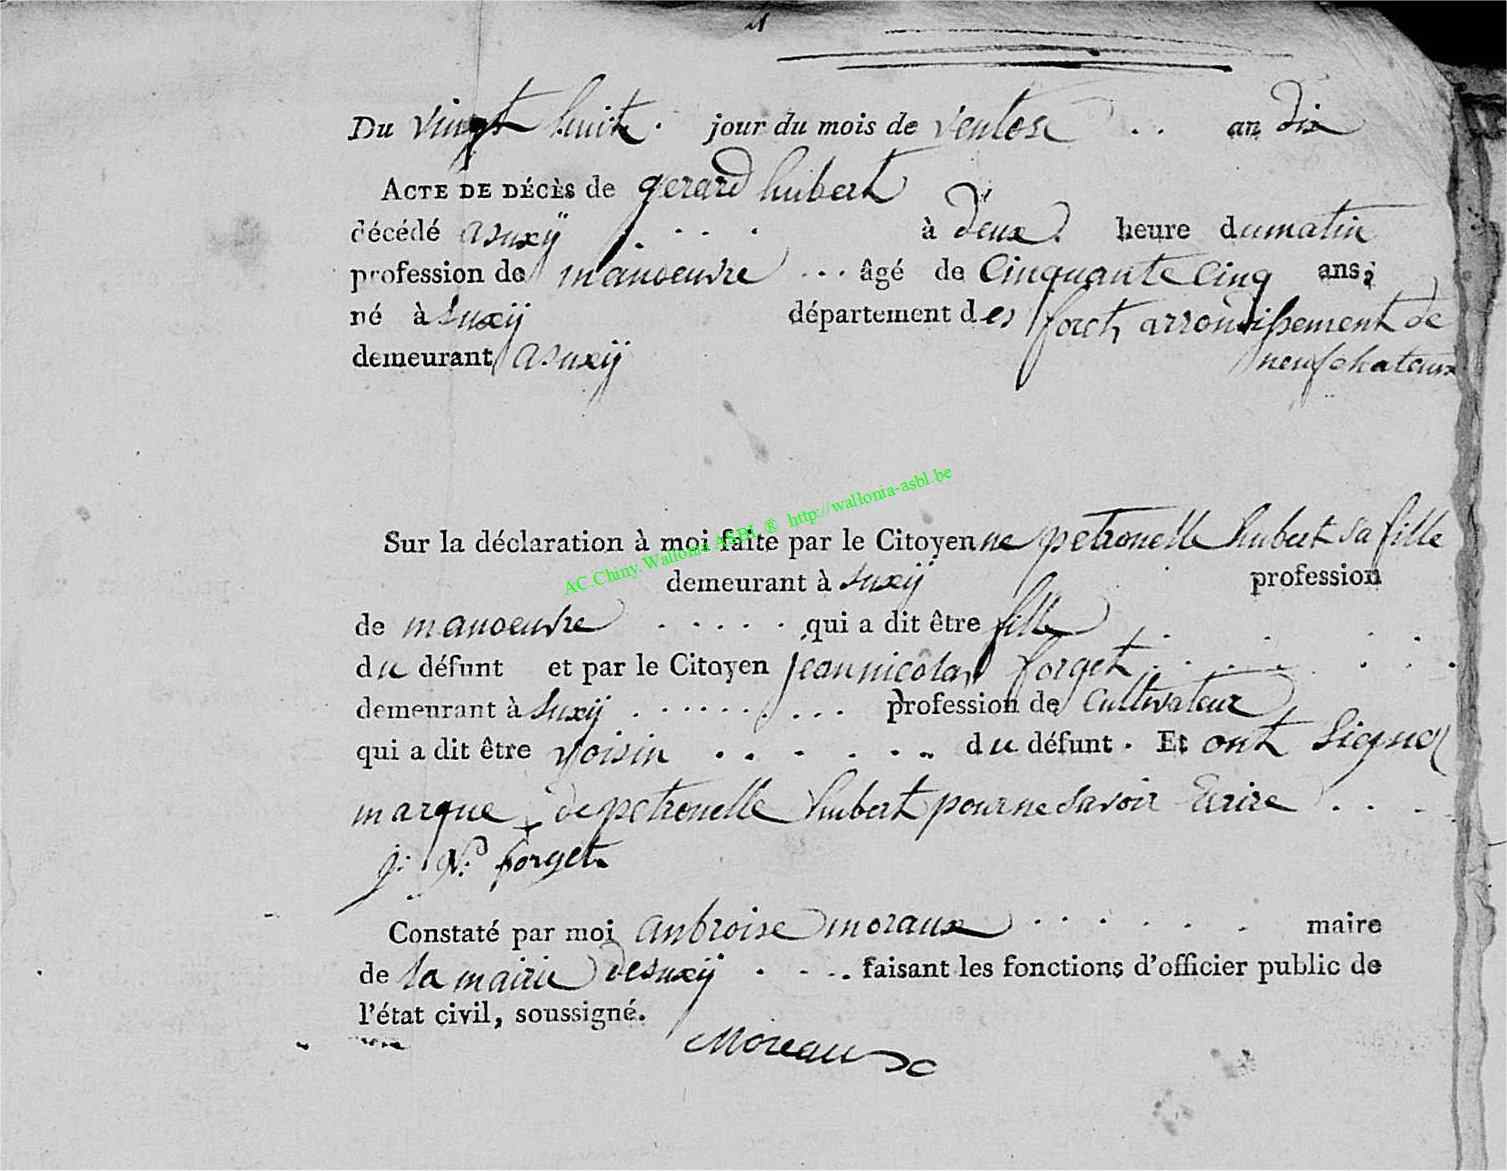 Du vingt huit . jour du mois de ventose . . an dix
ACTE DE DÉCÈS de gerard hubert
décédé a suxÿ . . . . à deux heure du matin
profession de manoeuvre . . . âgé de Cinquante Cinq ans,
né à Suxÿ département des foret, arrondissement de
neufchateaux
demeurant a suxÿ
Sur la déclaration à moi faite par le Citoyenne petronelle hubert sa fille
demeurant à suxÿ profession
de manoeuvre . . . . . qui a dit être fille . . . .
du défunt et par le Citoyen jean nicolas forget . . . . . . .
demeurant à Suxÿ . . . . . . . . . profession de Cultivateur
qui a dit être voisin . . . . . . . du défunt . Et ont Signez
marque + de petronelle hubert pour ne savoir Ecrire . . .
j: N: forget
Constaté par moi anbroise moraux . . . . . . maire
de la mairie de suxÿ . . . . faisant les fonctions d'officier public de
l'état civil, soussigné.
Moreaux
AC.Chiny.Wallonia ASBL ® http://wallonia-asbl.be